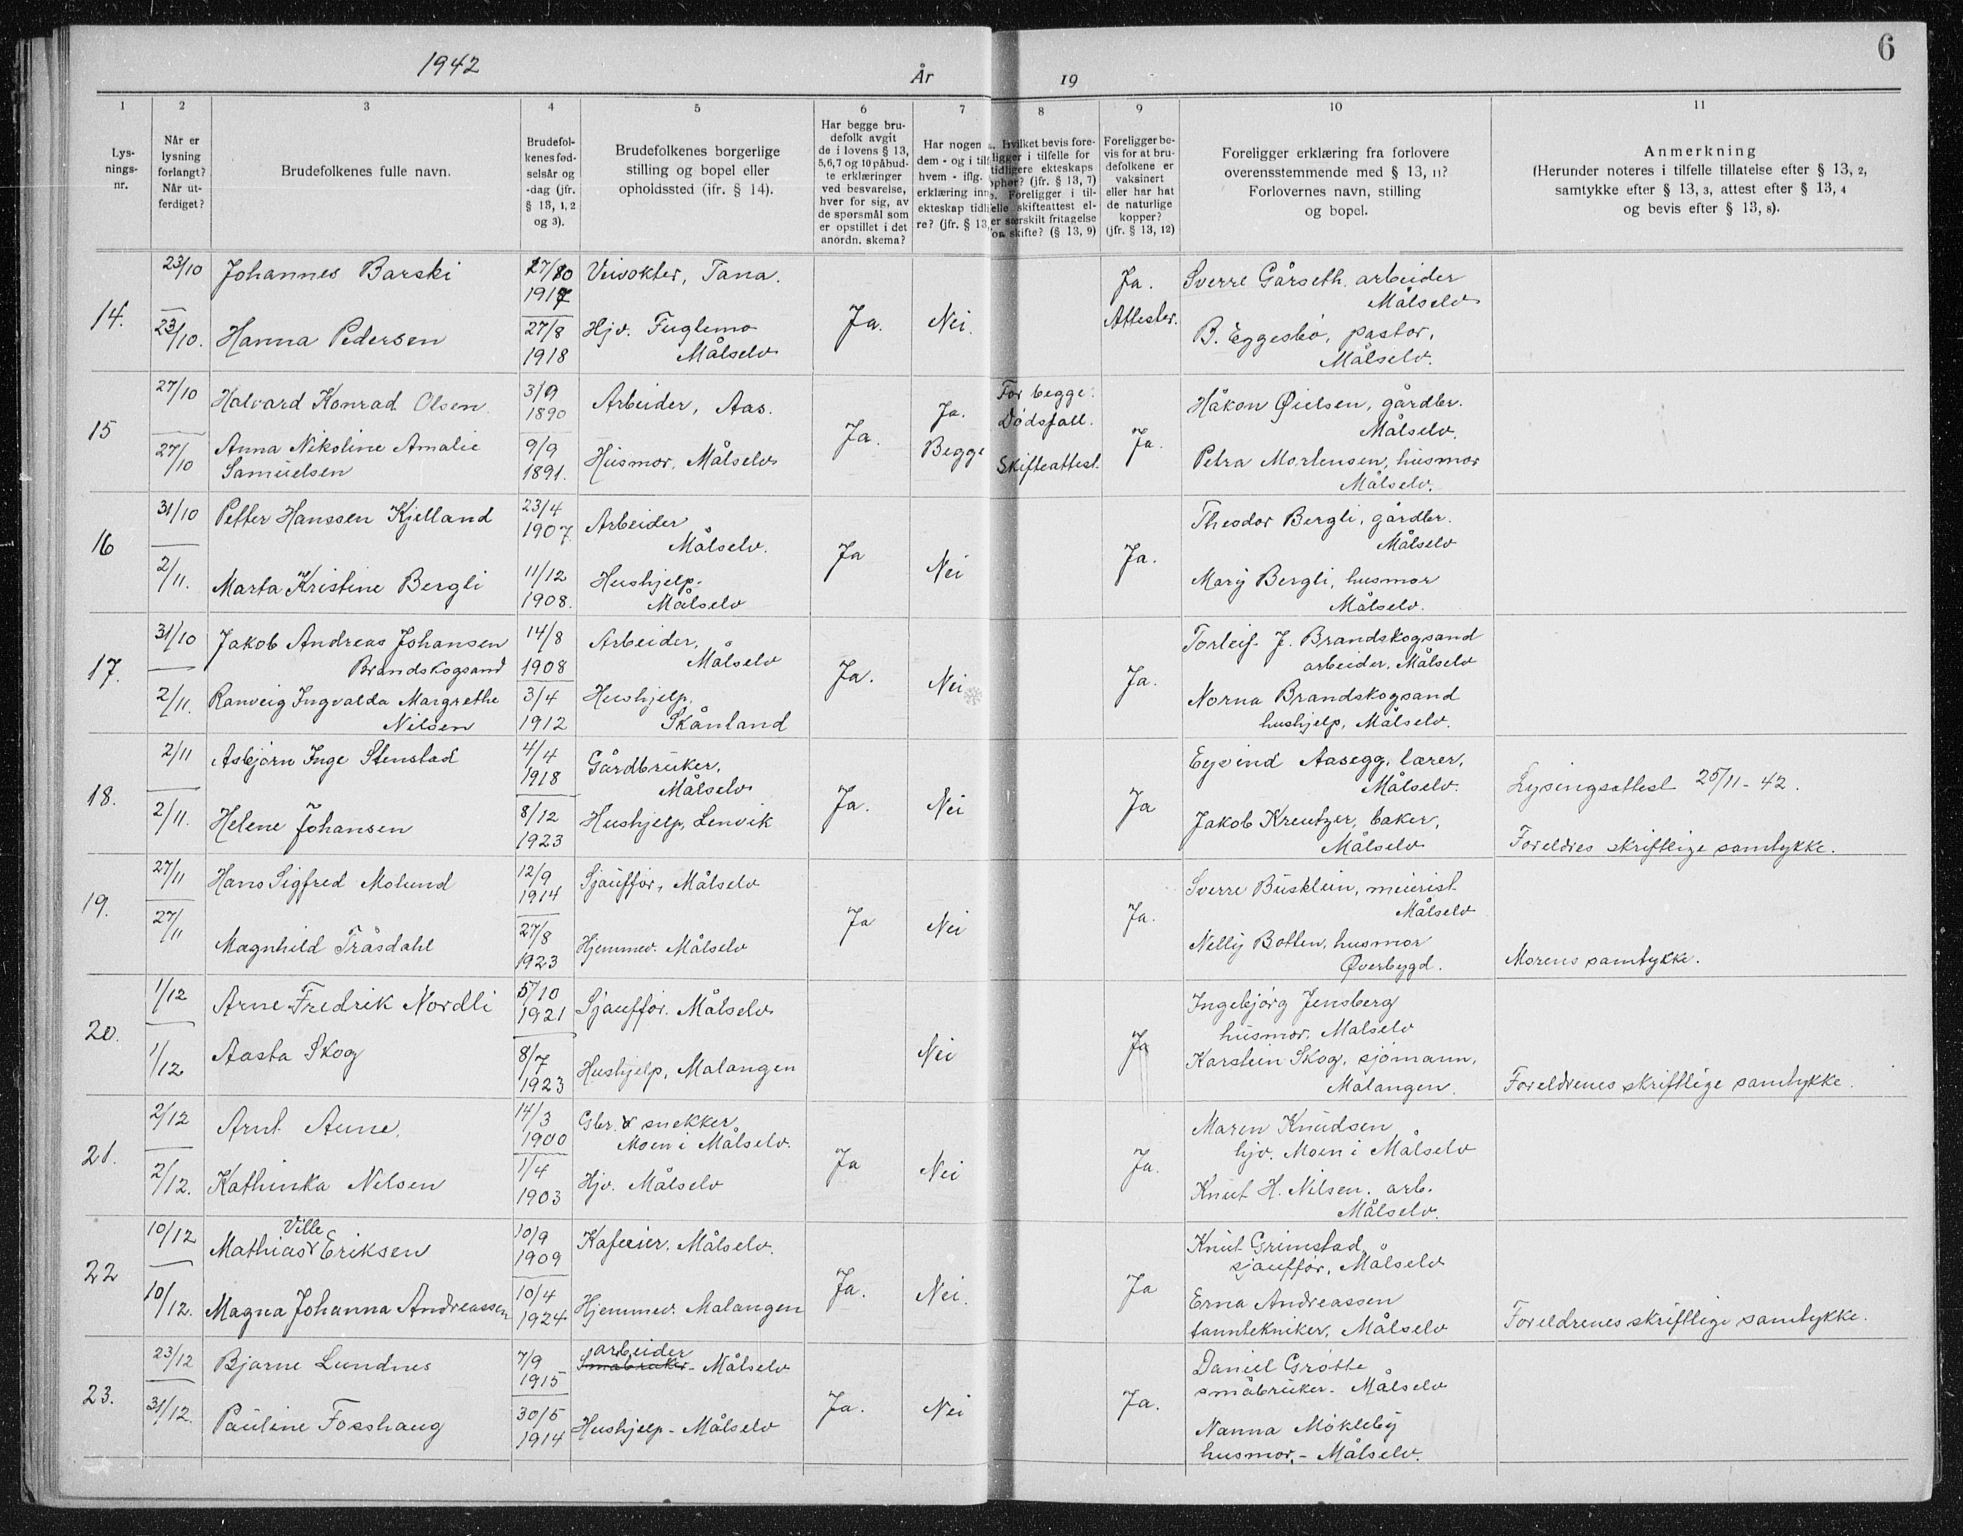 6
1942
År
19
1
2
3
4
5
6
7
8
9
10
11
Lysningsnr.
Når er lysning forlangt? Når utferdiget?
Brudefolkenes fulle navn.
Brudefolkenes fødselsår og -dag (jfr. § 13, 1, 2 og 3).
Brudefolkenes borgerlige stilling og bopel eller opholdssted (ifr. § 14).
Har begge brudefolk avgit de i lovens § 13, 5,6,7 og 10 påbudte erklæringer ved besvarelse, hver for sig, av de spørsmål som er opstillet i det anordn. skema?
Har nogen a
dem - og i tilf
hvem - iflg.
erklæring inn
ekteskap tidli
re? (jfr. § 13,
Hvilket bevis fore-
ligger i tilfelle for
tidligere ekteskaps
ophør? (jfr. § 13, 7)
Foreligger i til-
felle skifteattest el-
er særskilt fritagelse
on skifte? (§ 13, 9)
Foreligger bevis for at brudefolkene er vaksinert eller har hat de naturlige kopper? (jfr. § 13, 12)
Foreligger erklæring fra forlovere overensstemmende med § 13, 11? Forlovernes navn, stilling og bopel.
Anmerkning
(Herunder noteres i tilfelle tillatelse efter § 13, 2, samtykke efter § 13, 3, attest efter § 13, 4 og bevis efter § 13, 8).
14.
23/10 Johannes Barski 27/10 1917 Veivokter, Tana.
23/10. Hanna Pedersen 27/8 1918 Hjv. Fuglemo Målselv
Ja. Nei. Ja. Attester.
Sverre Gårseth, arbeider Målselv
B. Eggesbø, pastor, Målselv.
15
27/10 Halvard Konrad Olsen 3/9 1890 Arbeider, Aas.
27/10 Anna Nikoline Amalie Samuelsen 9/9 1891. Husmor, Målselv
Ja. Ja. Begge For begge: Dødsfall. Skifteattest. Ja.
Håkon Øielsen, gårdbr. Målselv.
Petra Mortensen, husmor Målselv.
16
31/10 Petter Hanssen Kjelland 23/4 1907. Arbeider Målselv.
2/11. Marta Kristine Bergli 11/12 1908. Hushjelp. Målselv
Ja Nei Ja.
Theodor Bergli, gårdbr. Målselv
Mary Bergli, husmor Målselv.
17.
31/10 Jakob Andreas Johansen Brandskogsand 14/8 1908 Arbeider, Målselv
2/11. Ranveig Ingvalda Margrethe Nilsen 3/4 1912 Hushjelp, Skånland
Ja. Nei Ja.
Torleif J. Brandskogsand arbeider, Målselv
Norna Brandskogsand hushjelp, Målselv.
18.
2/11 Asbjørn Inge Stenstad 4/4 1918 Gårdbruker, Målselv
2/11. Helene Johansen 8/12 1923 Hushjelp, Lenvik
Ja. Nei Ja
Eyvind Aasegg, lærer, Målselv.
Jakob Kreutzer, baker, Målselv
Lysingsattest 25/11-42.
Foreldres skriftlige samtykke.
19.
27/11 Hans Sigfred Molund 12/9 1914 Sjauffør, Målselv
27/11 Magnhild Tråsdahl 27/8 1923 Hjemmev. Målselv
Ja Nei Ja.
Sverre Busklein, meierist Målselv
Nelly Botten, husmor Øverbygd.
Morens samtykke.
20.
1/12 Arne Fredrik Nordli 5/10 1921 Sjauffør. Målselv
1/12 Aasta Skog 8/7 1923 Hushjelp, Malangen
Nei Ja
Ingebjørg Jensberg husmor, Målselv
Karstein Skog, sjømann, Malangen.
Foreldrenes skriftlige samtykke.
21.
2/12 Arnt Aune. 14/3 1900 Gbr. & snekker, Moen i Målselv.
2/12. Kathinka Nilsen 1/4 1903 Hjv. Målselv
Ja Nei Ja.
Maren Knudsen hjv. Moen i Målselv
Knut H. Nilsen, arb. Målselv.
22
10/12 Mathias Ville Eriksen 10/9 1909 Kafeeier. Målselv.
10/12. Magna Johanna Andreassen 10/4 1924 Hjemmev. Malangen
Ja. Nei. Ja
Knut Grimstad sjauffør, Målselv
Erna Andreassen tanntekniker, Målselv
Foreldrenes skriftlige samtykke.
23.
23/12 Bjarne Lundnes 7/9 1915 arbeider Småbruker - Målselv
31/12. Pauline Fosshaug 30/5 1914 Hushjelp - Målselv
Ja. Nei Ja.
Daniel Grøtte småbruker - Målselv
Nanna Mökleby husmor, - Målselv.